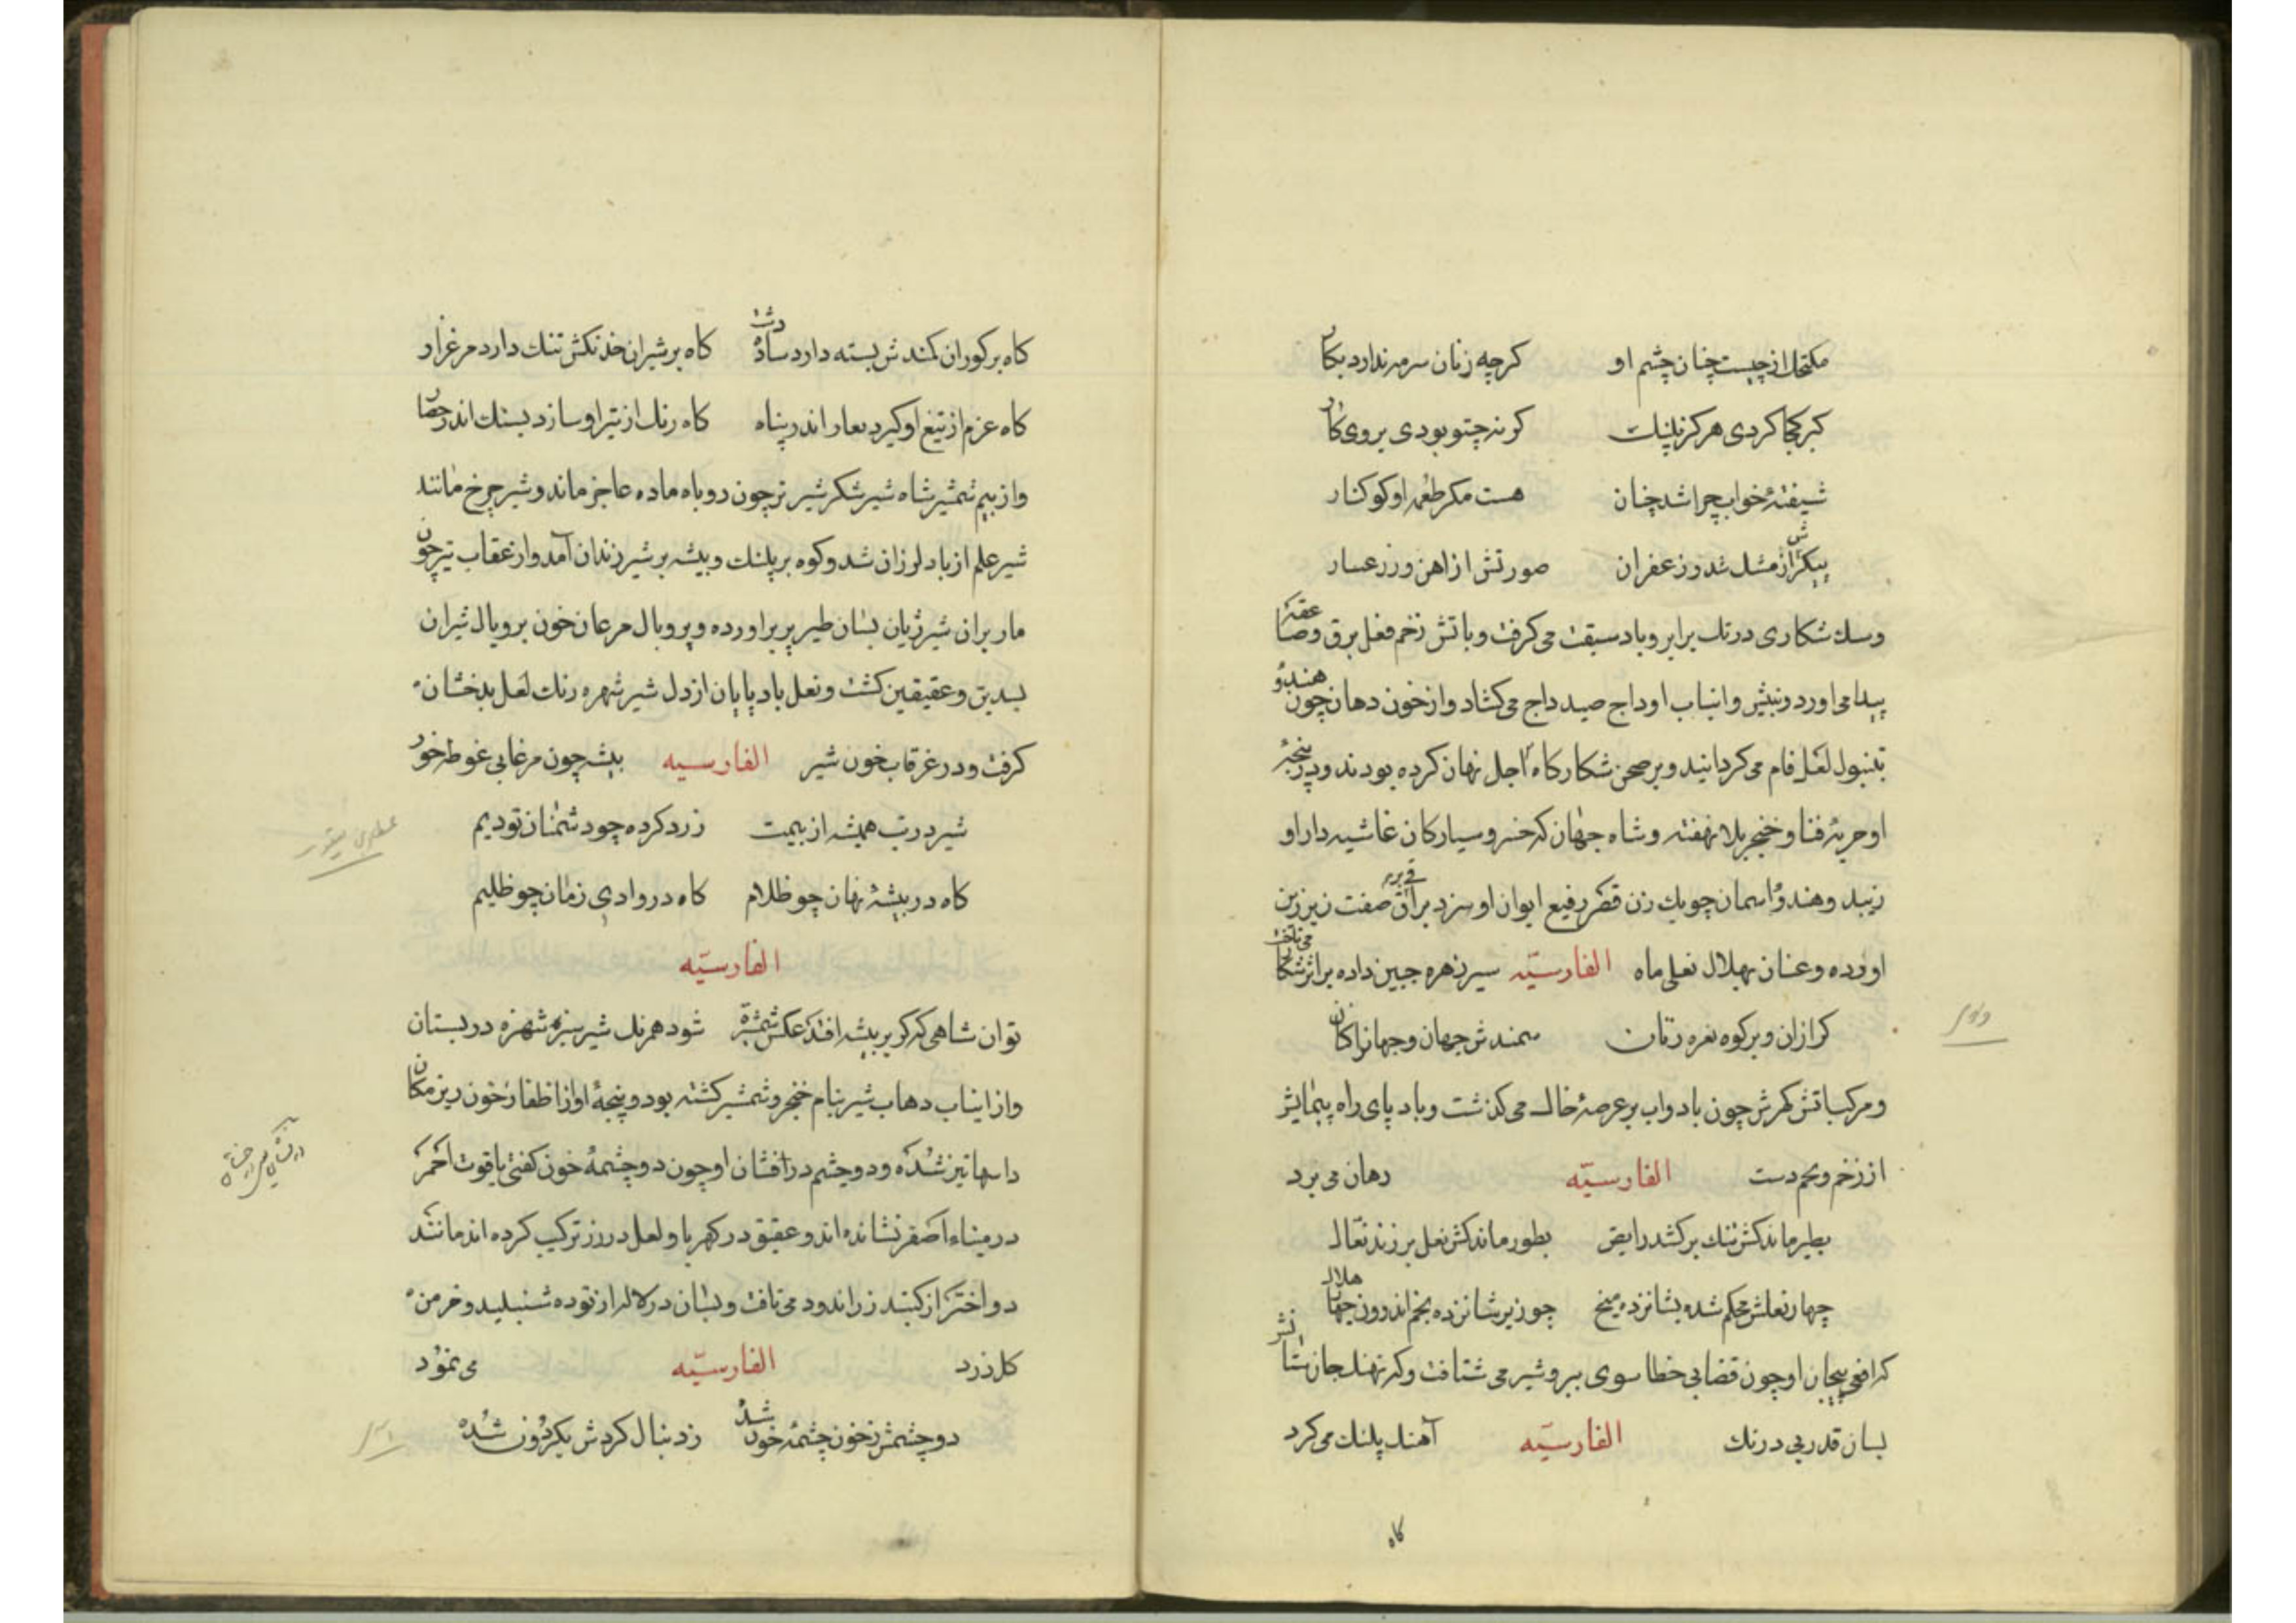 مکتحل از چیست چنان چشم او کرچه زنان سرمه ندارد بکار
کبر کجا کردی هرکز پلنک کر نه چتو بودی بروی کار
شیفتهٔ خواب چرا شد چنان هست مکر طعمه او کوکنار
پیکرش از مشک شد و زعفران صورتش از اهن و زر عسار
وسک شکاری در تک برابر و باد سبقت می کرفت و باتش زخم فعل برق و صاعقه
پیدا می اورد و بنیش و انیاب اوداج صید داج می کشاد و از خون دهان چون هندوْ
تنبول لعل فام می کردانید و بر صحن شکارکاه اجل نهان کرده بودند و در پنجهٔ
او حربهٔ فنا و خنجر بلا نهفته و شاه جهان که خسرو سیارکان غاشیه دار او
زیبد و هندوْ اسمان چوبک زن قصر رفیع ایوان او سزد براق صفت زیر زین
اورده و عنان بهلال نعلی ماه الفارسیّه سیر زهره جبین داده بر اثر شکار می تاخت
کرازان و بر کوه نعره زنان سمندش جهان و جهانرا کنان
و مرکب اتش کهرش چون باد و اب بر عرصهٔ خاک می کذشت و باد پای راه پیمایش
از زخم و خم دست الفارسیّه رهان می برد
بطیر ماند کش تنک برکشد رایض بطور ماند کش نعل برزند نعال
چهار نعلش محکم شده بشانزده میخ چو زیر شانزده نجم اندرون چهار هلال
که افعی پیچان او چون قضا بی خطا سوی ببر و شیر می شتافت و که نهنک جان ستانش
بسان قدر بی درنک الفارسیّه آهنک پلنک می کرد
کاه
کاه بر کوران کمندش بسته دارد ساده دشت کاه بر شیران خدنکش تنک دارد مرغزار
کاه عزم از تیغ او کیرد بغار اندر پناه کاه رنک از تیر او سازد بسنک اندر حصار
و از بیم شمشیر شاه شیر شکر شیر نر چون روباه ماده عاجز ماند و شیر چرخ مانند
شیر علم از باد لرزان شد و کوه بر پلنک و بیشه بر شیر زندان آمد و از عقاب تیر چون
مار پران شیر ژیان بسان طیر پر براورده و پر و بال مرغان خون بر و یال شیران
بسدین و عقیقین کشت و نعل باد پایان از دل شیر شهره رنک لعل بدخشان
کرفت و در غرقاب خون شیر الفارسیه بیشه چون مرغابی غوطه خورد
شیر در تب همیشه از بیمت زرد کرده چو دشمنان تو دیم
کاه در بیشهٔ نهان چو ظلام کاه در وادی زمان چو ظلیم
الفارسیّه
توان شاهی که کر بر بیشه افتد عکس شمشیرت شود همرنک شیر سبزه شهزه در بستان
و از انیاب دهاب شیر نیام خنجر و شمشیر کشته بود و پنجهٔ او از اظفار خون ریز مکان
داسها تیز شده و دو چشم درافشان او چون دو چشمهٔ خون کفتی یاقوت احمر
در میناء اصفر نشانده اند و عقیق در کهربا و لعل در زر ترکیب کرده اند مانند
دو اختر از کنبد زراندود می تافت و بسان در لاله از توده شنبلید و خرمن
کل زرد الفارسیّه می نمود
دو چشمش ز خون چشمهٔ خون شد ز دنبال کردش بکردون شده